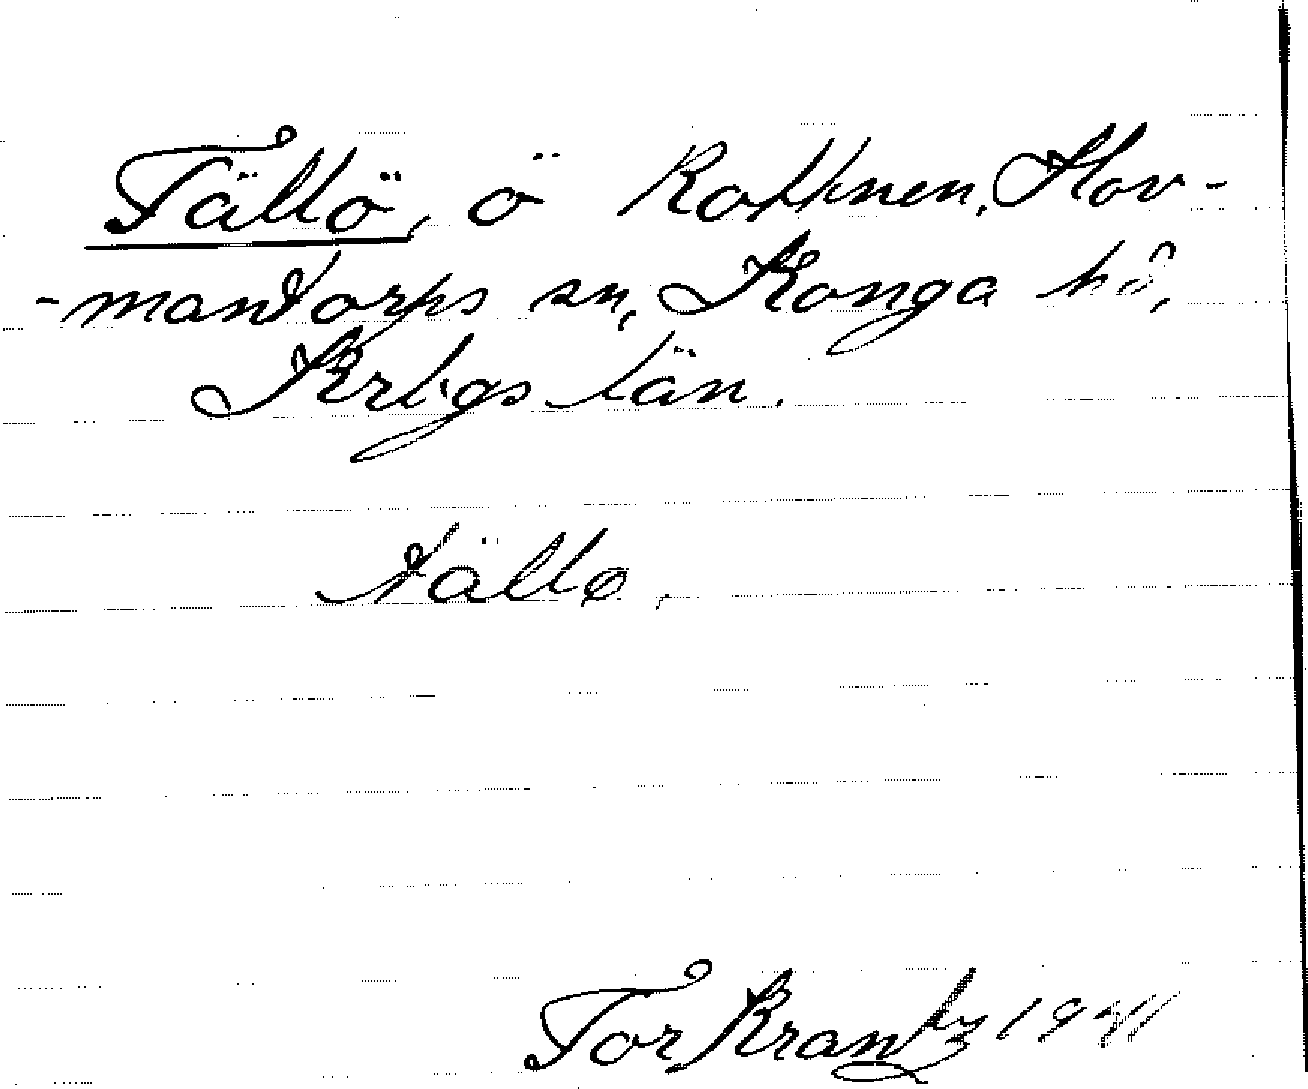 Tällö, ö Rottnen, Hov-
-mantorps sn, Konga hd,
Krbgs län.
tällø,
Tor Krantz 1941